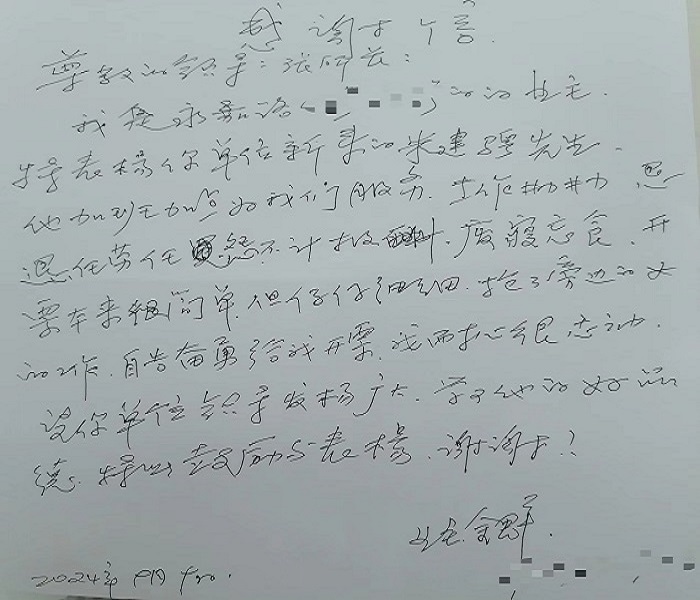 感谢信
尊敬的领导:张所长:
我是永嘉路( )的业主.
特表扬你单位新来的朱建强先生.
他加班加点为我们服务.工作勤勤恳
恳任劳任怨不计报酬.废寝忘食.开
票本来很简单.但仔仔细细.抢了旁边的
的工作.自告奋勇给我开票.我两 很感动.
望你单位领导发扬广大.学习他的好品
德.特此鼓励与表扬.谢谢!!
业主.
2024年